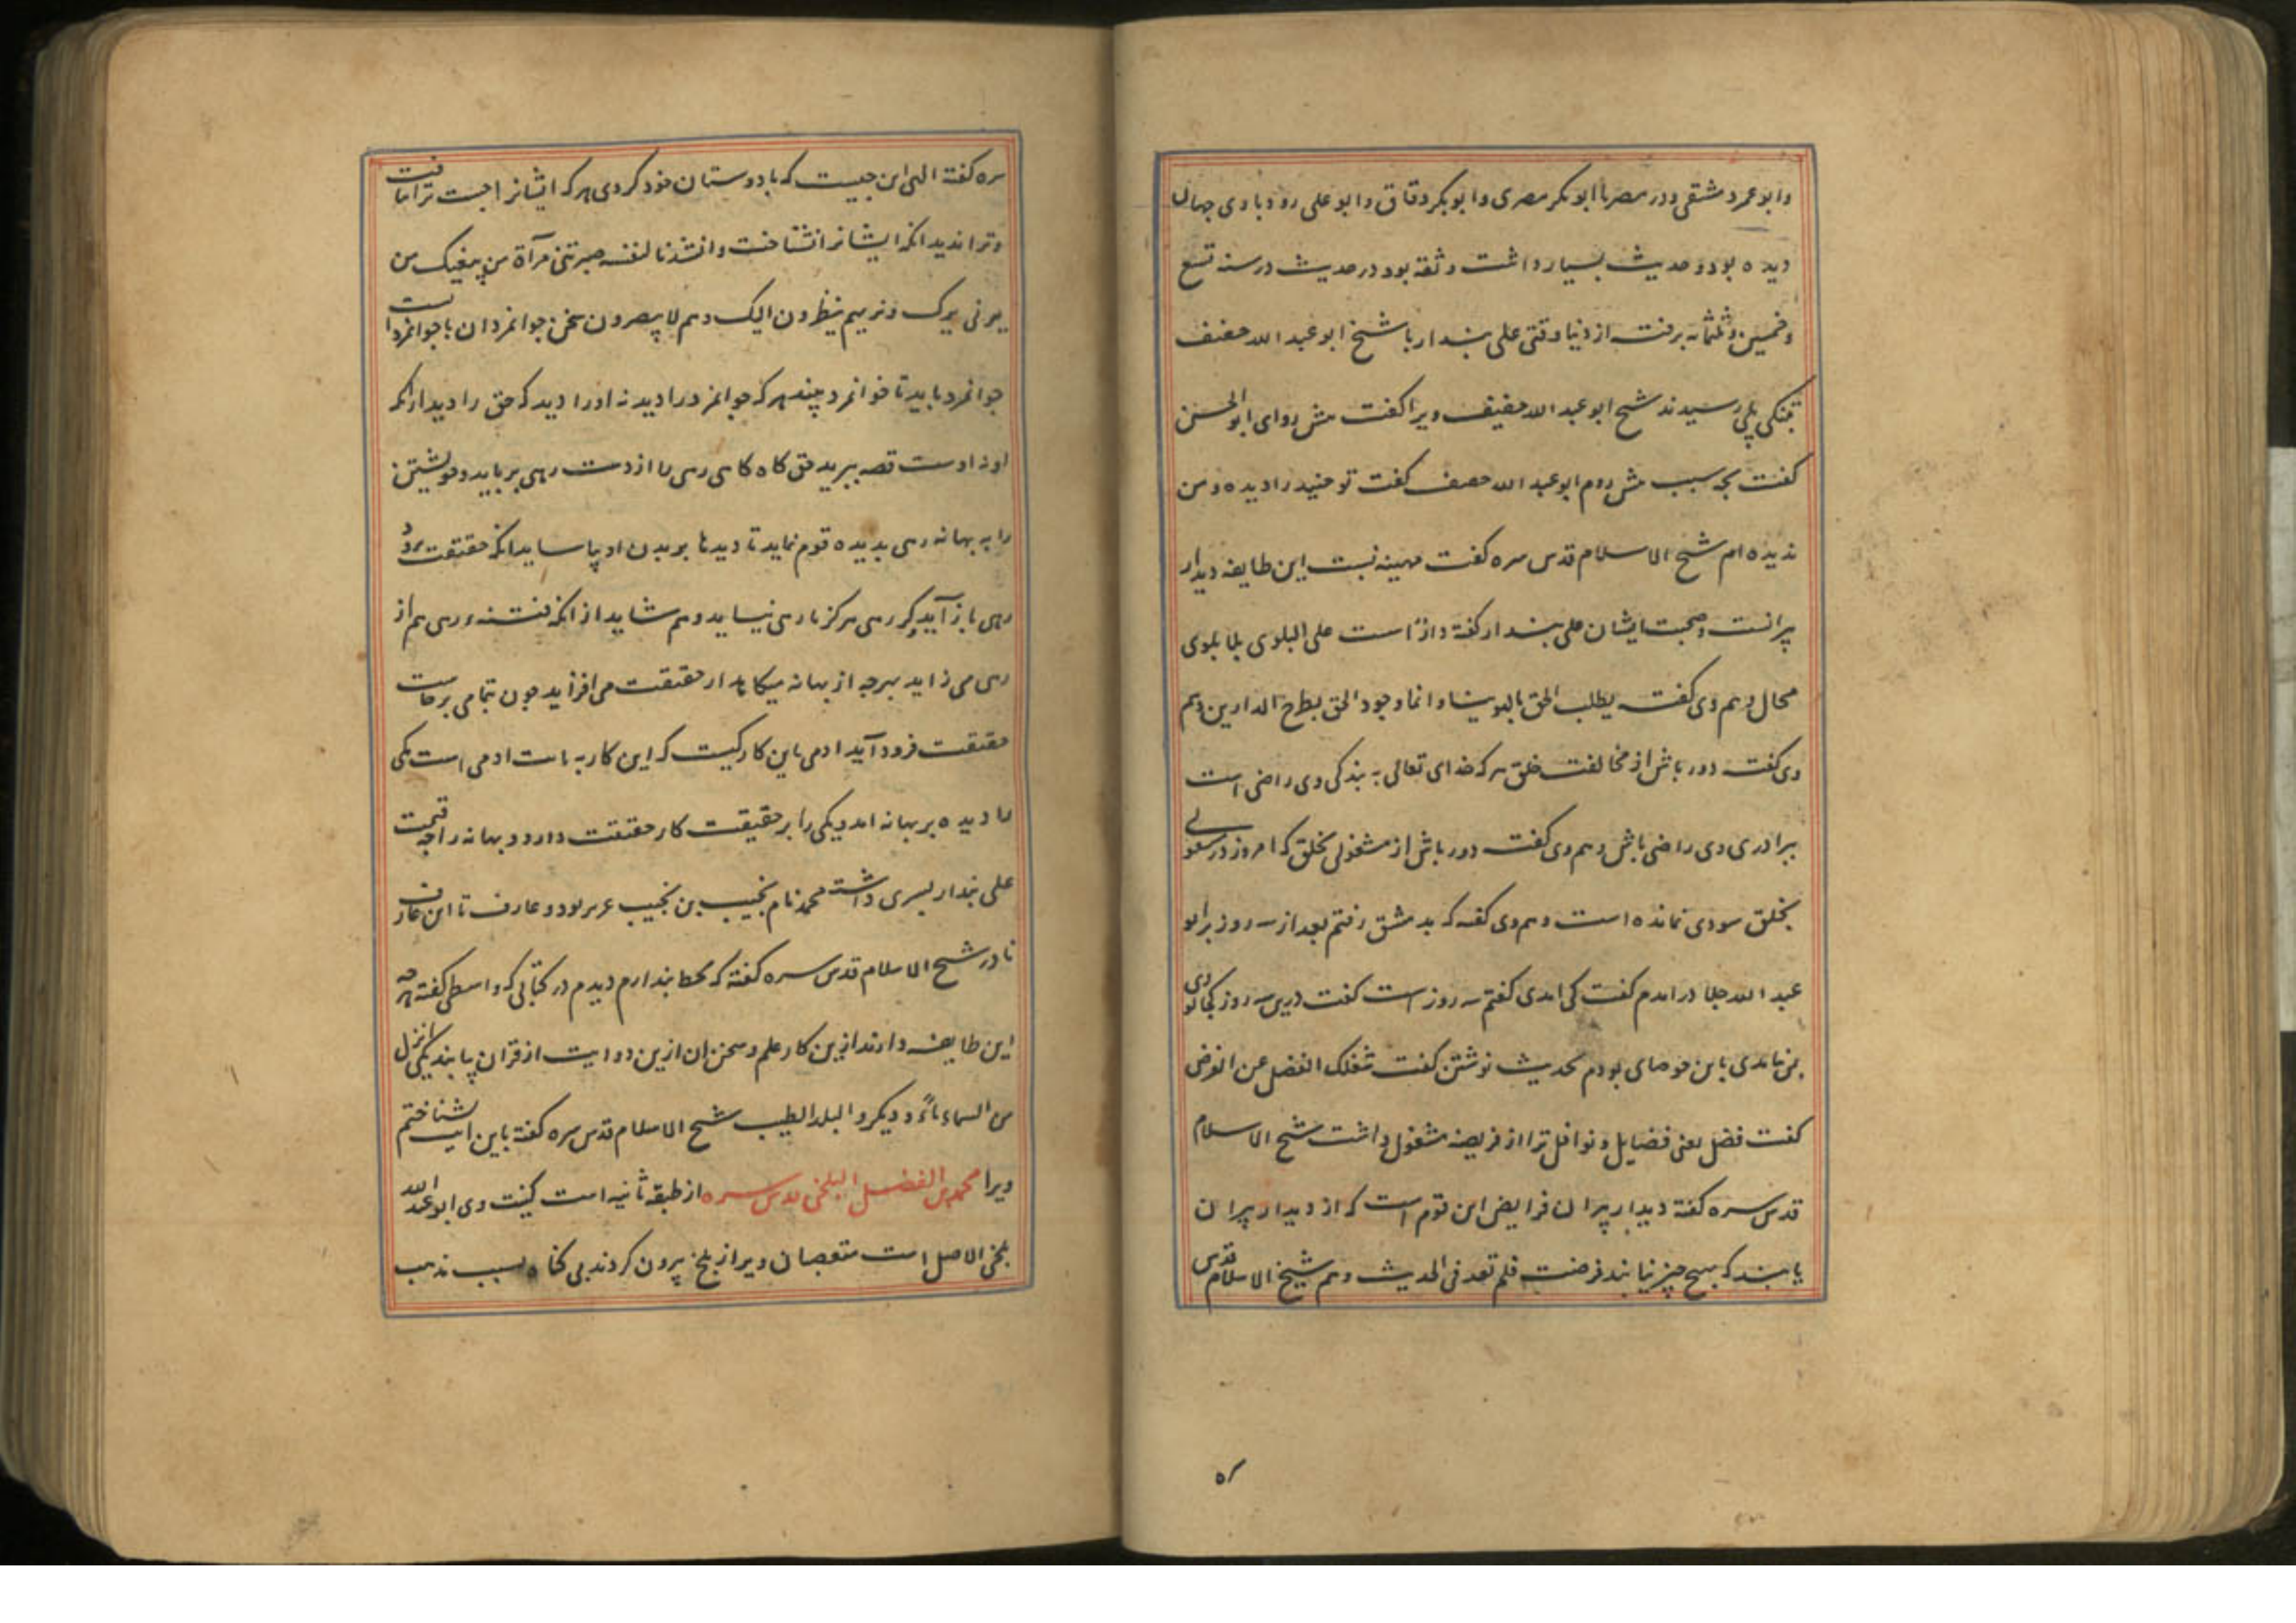 وابو عمرو دمشقی ودر مصر با ابو بکر مصری وابو بکر دقاق وابو علی رودباری جهان
دیده بود وحدیث بسیار داشت وثقه بود در حدیث در سنه تسع
وخمسین وثلثمائه برفت از دنیا وقتی علی بندار با شیخ ابو عبد الله خفیف
بتنکی پلی رسیدند شیخ ابو عبد الله خفیف ویرا کفت پیش رو ای ابو الحسن
کفت بچه سبب پیش روم ابو عبد الله خفیف کفت تو جنید را دیده ومن
ندیده ام شیخ الاسلام قدس سره کفت مهینه نسبت این طایفه دیدار
پیرانست وصحبت ایشان علی بندار کفته دار است علی البلوی بلا بلوی
محال وهم وی کفت یطلب الحق بالهوینا وانما وجود الحق بطرح الدارین وهم
وی کفت دور باش از مخالفت خلق هر که خدای تعالی به بندکی وی راضی است
ببرادری وی راضی باش وهم وی کفت دور باش از مشغولی بخلق که امروز در مشغولی
بخلق سودی نمانده است وهم وی کفته که بدمشق رفتم بعد از سه روز بر ابو
عبد الله جلا درامدم کفت کی امدی کفتم سه روز است کفت درین سه روز کجا بودی
بمن نامدی با بن حوصای بودم بحدیث نوشتن کفت شغلک الفضل عن الفرض
کفت فضل یعنی فضایل ونوافل ترا از فریضه مشغول داشت شیخ الاسلام
قدس سره کفته دیدار پیران فرایض این قوم است که از دیدار پیران
یابند که بهیچ چیز نیابند فرضت فلم تعدنی الحدیث وهم شیخ الاسلام قدس
سره کفته الهی این چیست که با دوستان خود کردی هر که ایشانرا جست ترا یافت
وترا ندید انکه ایشانرا نشناخت وانشدنا لنفسه صیرتنی مرآة من یبغیک من
یرنی یرک وتریهم ینظرون الیک وهم لا یبصرون سخن جوانمردان با جوانمردانست
جوانمرد باید تا جوانمرد بیند هر که جوانمرد را دید نه او را دید که حق را دید ازانکه
او نه اوست قصه ببرید حق کاه کاهی رهی را از دست رهی برباید وخویشتن
را به بهانه رهی بدیده قوم نماید تا دیدها بدیدن او بیاساید انکه حقیقت برود
رهی باز آید کر رهی هرکز با رهی نیساید وهم شاید از انکه فتنه رهی هم از
رهی می زاید هرچه از بهانه میکاهد از حقیقت می افزاید چون بتمامی برخاست
حقیقت فرود آید ادمی باین کار کیست که این کار به بابت ادمی است یکی
را دیده بر بهانه امد ویکی را بر حقیقت کار حقیقت دارد وبهانه را چه قیمت
علی بندار پسری داشت محمد نام نجیب بن نجیب عزیز بود وعارف تا این عارف
نادر شیخ الاسلام قدس سره کفته که بخط بندارم دیدم در کتابی که واسطی کفته هر چه
این طایفه دارند ازین کار علم وسخن ان ازین دو ایت از قران یابند یکی انزل
من السماء ماءً ودیکر والبلد الطیب شیخ الاسلام قدس سره کفته باین ایت شناختم
ویرا محمد بن الفضل البلخی قدس سره از طبقه ثانیه است کنیت وی ابو عبد الله
بلخی الاصل است متعصبان ویرا از بلخ بیرون کردند بی کناه بسبب مذهب